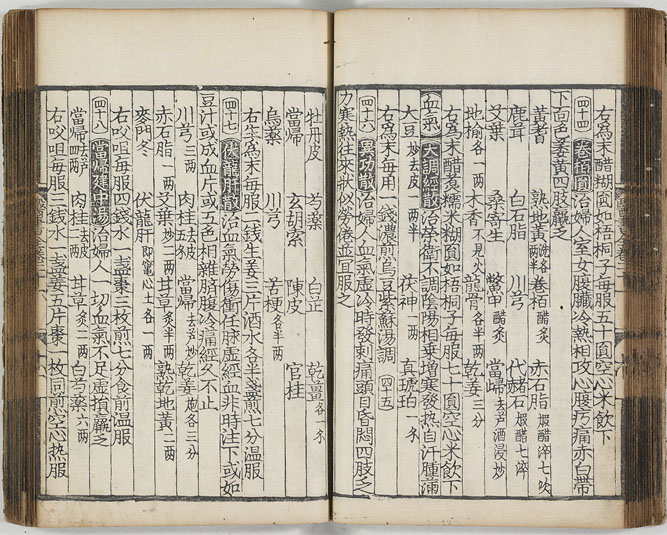 右為末醋糊圓如梧桐子每服五十圓空心米飲下
四十四 卷栢圓 治婦人室女腹臟冷熱相攻心腹㽲痛赤白帶
下面色萎黃四肢羸乏
黃耆 熟地黃洗各 卷栢醋炙 赤石脂煅醋淬七次
鹿茸 白石脂 川芎 代赭石煅醋七淬
艾葉 桑寄生 鱉甲醋炙 當歸去芦酒浸炒
地榆各一兩 木香不見火 龍骨各半兩 乾姜三分
右為末醋煮糯米糊圓如梧桐子每服七十圓空心米飲下
血氣 大調經散 治榮衛不調陰陽相乗增寒發熱自汗腫滿
大豆炒去皮一兩半 茯神一兩 真琥珀一
右為末每用一錢濃煎烏豆紫蘇湯調 四十五
四十六 異功散 治婦人血氣虛冷時發刺痛頭目昏悶四肢乏
力寒熱往來狀似勞倦並宜服之
牡丹皮 芍藥 白芷 乾薑各一
當歸 玄胡索 陳皮 官桂
烏藥 川芎 苦梗各半兩
右生為末每服二錢生姜三片酒水各半盞煎七分温服
四十七 伏龍肝散 治血氣勞傷衝任脉虛經血非時注下或如
豆汁或成血片或五色相雜臍腹冷痛經久不止
川芎三兩 肉桂去皮 當歸去芦炒 乾姜炮各三分
赤石脂一兩 艾葉炒二兩 甘草炙半兩 熟乾地黃二兩
麥門冬 伏龍肝即竃心土各一兩
右㕮咀每服四錢水一盞棗三枚煎七分食前温服
四十八 當歸建中湯 治婦人一切血氣不足虛損羸乏
當歸四兩去芦 肉桂去皮 甘草炙二兩 白芍藥六兩
右㕮咀每服三錢水一盞姜五片棗一枚同煎空心热服